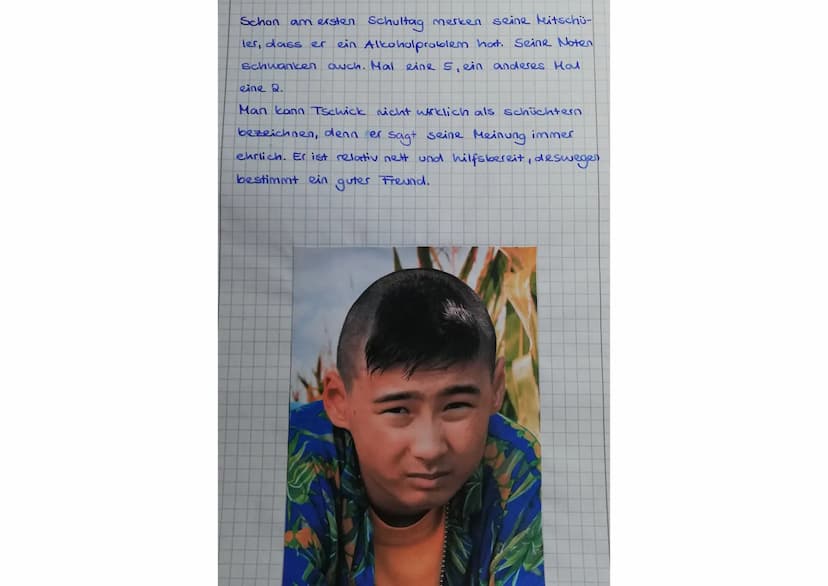 Schon am ersten Schultag merken seine Mitschü-
ler, dass er ein Alkoholproblem hat. Seine Noten
schwanken auch. Mal eine 5, ein anderes Mal
eine 2.
Man kann Tschick nicht wirklich als schüchtern
bezeichnen, denn er sagt seine Meinung immer
ehrlich. Er ist relativ nett und hilfsbereit, deswegen
bestimmt ein guter Freund.